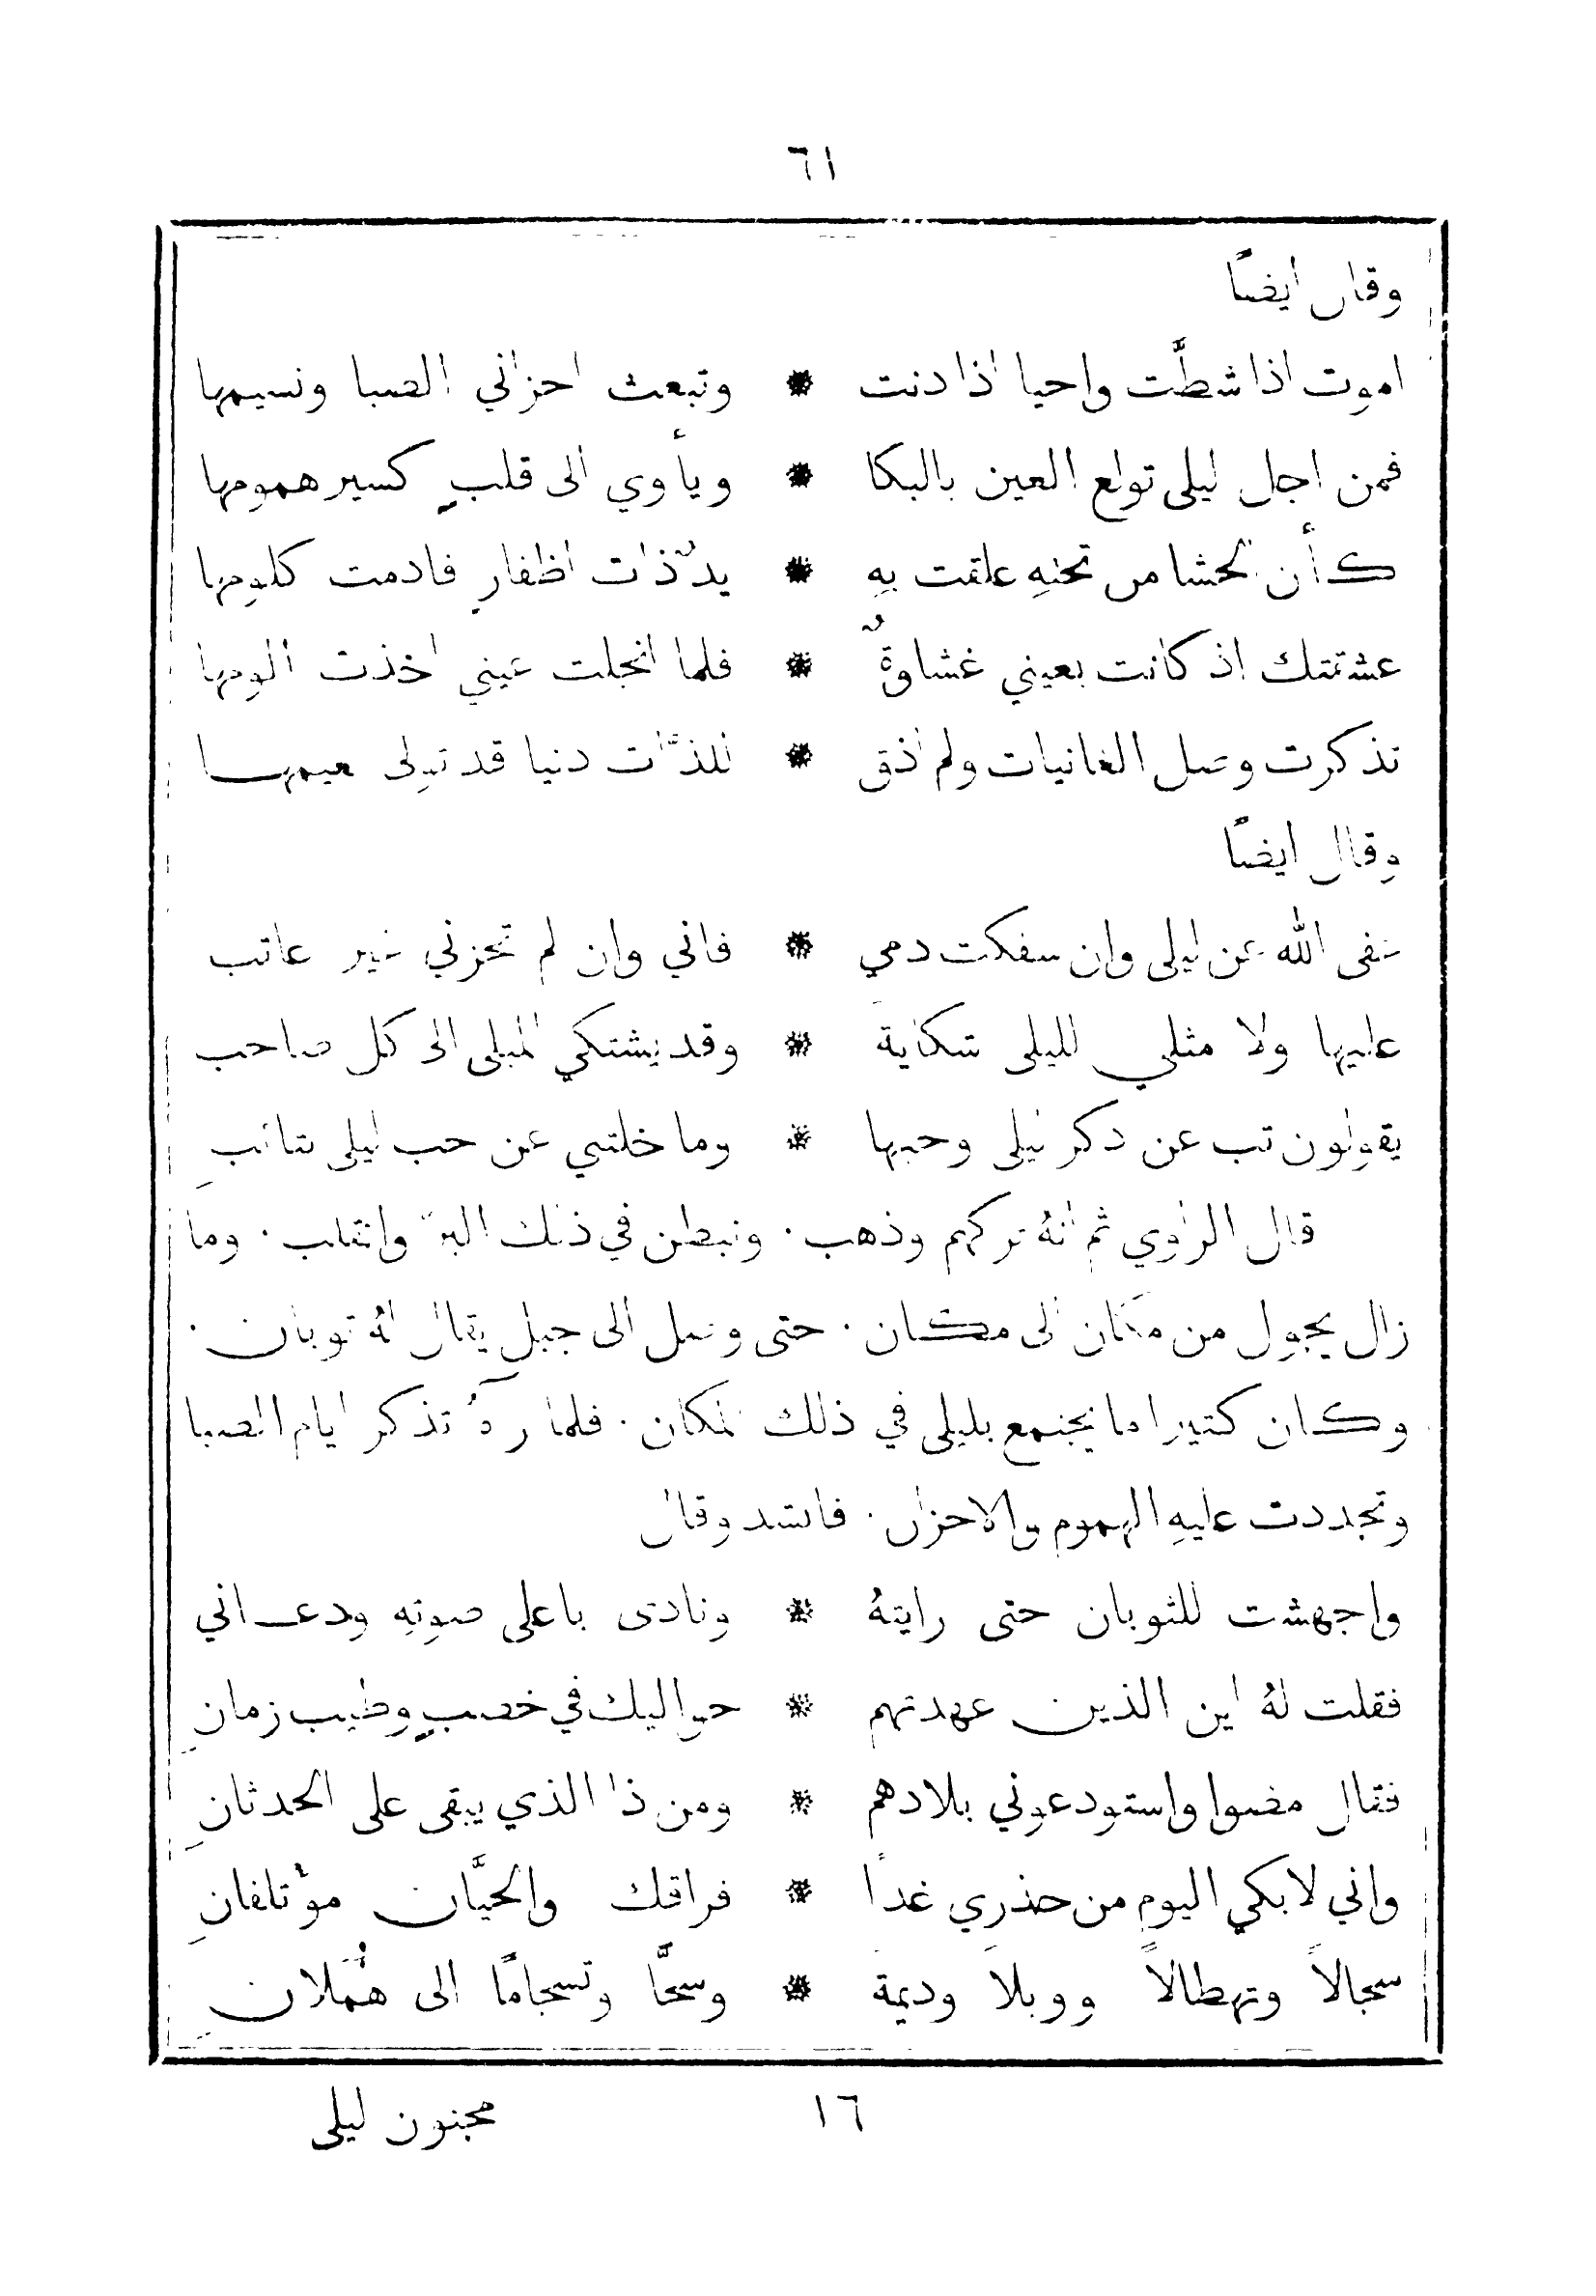 ٦١
وقال ايضًا
اموت اذا شطَّت واحيا اذا دنت * وتبعث احزاني الصبا ونسيمها
فمن اجل ليلى تولع العين بالبكا * ويأوي الى قلبٍ كسير همومها
كأن الحشا من تحتهِ علقت بهِ * يدٌ ذات اظفارٍ فادمت كلومها
عشقتك اذ كانت بعيني غشاوةٌ * فلما انجلت عيني اخذت الومها
تذكرت وصل الغانيات ولم اذق * للذَّات دنيا قد تولى نعيمها
وقال ايضًا
عفى الله عن ليلى وان سفكت دمي * فاني وان لم تجزني غير عاتب
عليها ولا مثلي لليلى شكاية * وقد يشتكي المبلى الى كل صاحب
يقولون تب عن ذكر ليلى وحبها * وما خلتني عن حب ليلى بتائبِ
قال الراوي ثم انهُ تركهم وذهب . وتبطن في ذلك البرّ وانقلب . وما
زال يجول من مكان الى مكان . حتى وصل الى جبل يقال لهُ توبان .
وكان كثيرا ما يجتمع بليلى في ذلك المكان . فلما رآهُ تذكر ايام الصبا
وتجددت عليهِ الهموم والاحزان . فانشد وقال
واجهشت للثوبان حتى رايتهُ * ونادى باعلى صوتهِ ودعاني
فقلت لهُ اين الذين عهدتهم * حواليك في خصبٍ وطيب زمانِ
فقال مضوا واستودعوني بلادهم * ومن ذا الذي يبقى على الحدثانِ
واني لابكي اليوم من حذري غداً * فراقك والحيَّان مؤتلفانِ
سجالاً وتهطالاً ووبلاً وديمة * وسحًّا وتسجامًا الى هُمَلانِ
١٦
مجنون ليلى